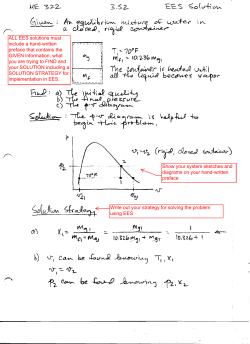 ME 322 3.52 EES Solution
Given: An equilibrium mixture of water in
a closed, rigid container
ALL EES solutions must
include a hand-written
preface that contains the
GIVEN information, what
you are trying to FIND and
your SOLUTION including a
SOLUTION STRATEGY for
implementation in EES.
mg
mf
T₁ = 70°F
mf₁ = 10.236 mg₁
The container is heated until
all the liquid becomes vapor
Find: a) The initial quality
b) The final pressure
c) The P-v diagram
Solution: The P-v diagram is helpful to
begin this problem.
P
v₁ = v₂ (rigid, closed container)
P₂
2
70°F
1
v
Show your system sketches and
diagrams on your hand-written
preface
Solution Strategy
Write out your strategy for solving the problem
using EES
a) x₁ = mg₁ / (mf₁ + mg₁) = mg₁ / (10.236 mg₁ + mg₁) = 1 / (10.236 + 1)
b) v₁ can be found knowing T₁, x₁
v₁ = v₂
P₂ can be found knowing v₂, x₂